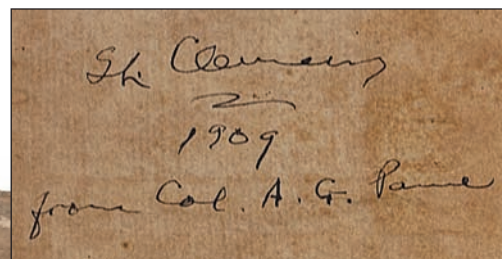 SL. Clemens
1909
from Col. A. G. Paine